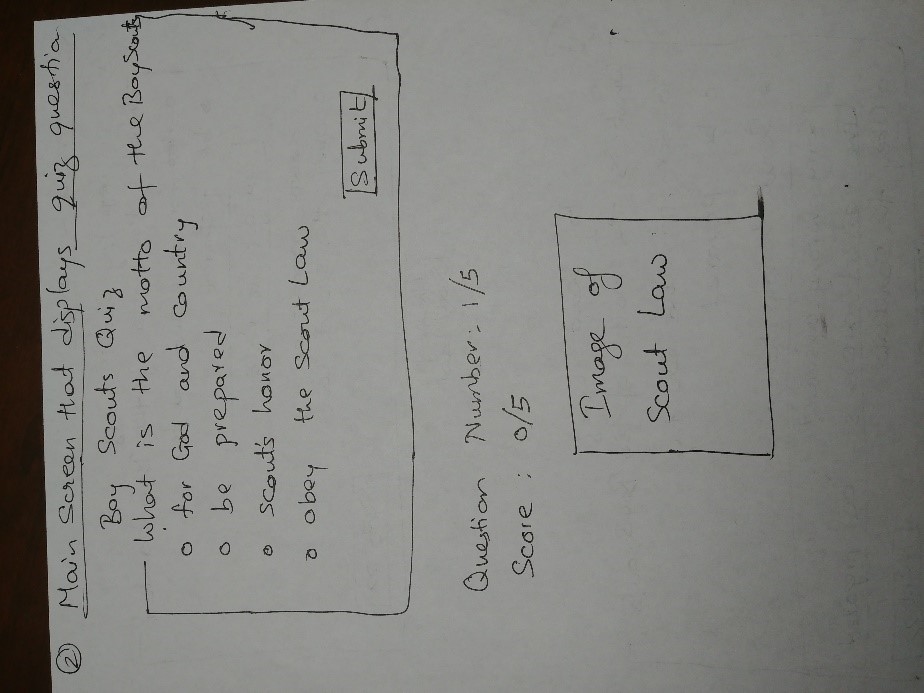 ② Main Screen that displays quiz question
Boy Scouts Quiz
What is the motto of the Boy Scouts
o for God and Country
o be prepared
o scout's honor
o obey the Scout Law
Submit
Question Number: 1/5
Score: 0/5
Image of
Scout Law